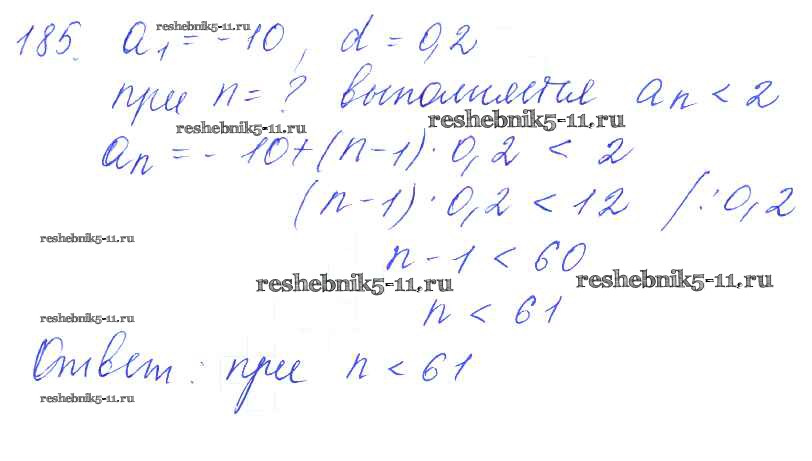 reshebnik5-11.ru
185. a₁ = -10, d = 0,2
при n = ? выполняется aₙ < 2
reshebnik5-11.ru reshebnik5-11.ru
aₙ = -10 + (n-1) · 0,2 < 2
(n-1) · 0,2 < 12 /: 0,2
reshebnik5-11.ru
n - 1 < 60
reshebnik5-11.ru reshebnik5-11.ru
n < 61
reshebnik5-11.ru
Ответ: при n < 61
reshebnik5-11.ru